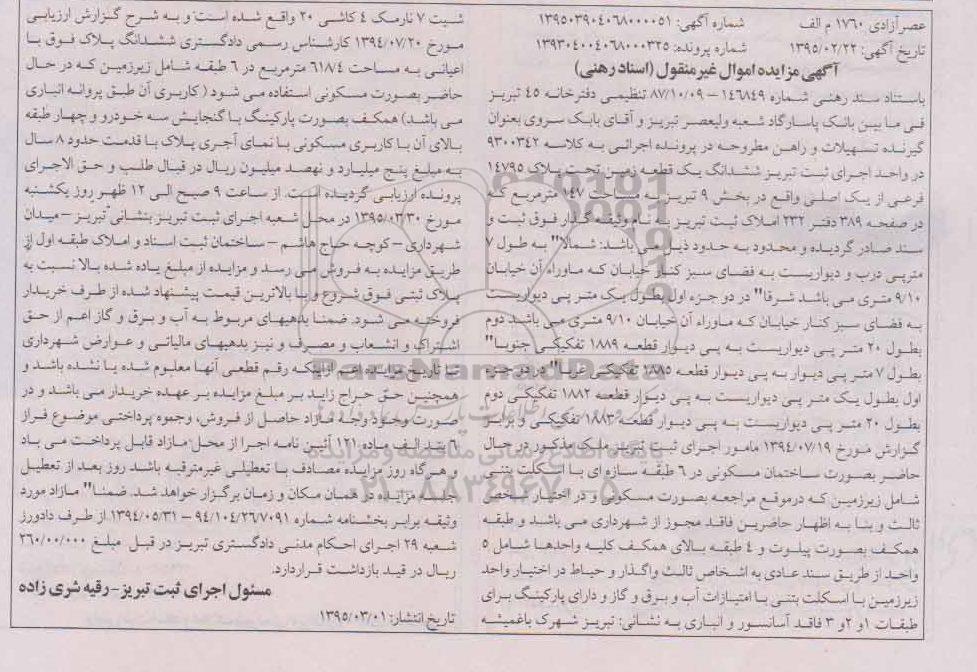 عصرآزادی ۱۷۶۰ م الف
شماره آگهی: ۱۳۹۵۰۳۹۰۴۰۶۸۰۰۰۰۵۱
تاریخ آگهی: ۱۳۹۵/۰۲/۲۲
شماره پرونده: ۱۳۹۳۰۴۰۰۴۰۶۸۰۰۰۳۲۵
آگهی مزایده اموال غیرمنقول (اسناد رهنی)
باستناد سند رهنی شماره ۱۴۶۸۴۹ – ۸۷/۱۰/۰۹ تنظیمی دفترخانه ۴۵ تبریز
فی ما بین بانک پاسارگاد شعبه ولیعصر تبریز و آقای بابک سروی بعنوان
گیرنده تسهیلات و راهن مطروحه در پرونده اجرائی به کلاسه ۹۳۰۰۳۴۲
در واحد اجرای ثبت تبریز ششدانگ یک قطعه زمین تحت پلاک ۱۴۷۹۵
فرعی از یک اصلی واقع در بخش ۹ تبریز به مساحت ۱۴۷ مترمربع که
در صفحه ۳۸۹ دفتر ۲۳۲ املاک ثبت تبریز بنام وثیقه گذار فوق ثبت و
سند صادر گردیده و محدود به حدود ذیل می باشد: شمالا" به طول ۷
مترپی درب و دیواریست به فضای سبز کنار خیابان که ماوراء آن خیابان
۹/۱۰ متری می باشد شرقا" در دو جزء اول بطول یک متر پی دیواریست
به فضای سبز کنار خیابان که ماوراء آن خیابان ۹/۱۰ متری می باشد دوم
بطول ۲۰ متر پی دیواریست به پی دیوار قطعه ۱۸۸۹ تفکیکی جنوبا"
بطول ۷ متر پی دیوار به پی دیوار قطعه ۱۸۸۵ تفکیکی غربا" در دو جزء
اول بطول یک متر پی دیواریست به پی دیوار قطعه ۱۸۸۲ تفکیکی دوم
بطول ۲۰ متر پی دیواریست به پی دیوار قطعه ۱۸۸۳ تفکیکی و برابر
گزارش مورخ ۱۳۹۴/۰۷/۱۹ مامور اجرای ثبت تبریز ملک مذکور در حال
حاضر بصورت ساختمان مسکونی در ۶ طبقه سازه ای با اسکلت بتنی
شامل زیرزمین که درموقع مراجعه بصورت مسکونی و در اختیار شخص
ثالث و بنا به اظهار حاضرین فاقد مجوز از شهرداری می باشد و طبقه
همکف بصورت پیلوت و ۴ طبقه بالای همکف کلیه واحدها شامل ۵
واحد از طریق سند عادی به اشخاص ثالث واگذار و حیاط در اختیار واحد
زیرزمین با اسکلت بتنی با امتیازات آب و برق و گاز و دارای پارکینگ برای
طبقات ۱و ۲و ۳ فاقد آسانسور و انباری به نشانی: تبریز شهرک باغمیشه
شیت ۷ نارمک ۴ کاشی ۲۰ واقع شده است و به شرح گزارش ارزیابی
مورخ ۱۳۹۴/۰۷/۲۰ کارشناس رسمی دادگستری ششدانگ پلاک فوق با
اعیانی به مساحت ۶۱۸/۴ مترمربع در ۶ طبقه شامل زیرزمین که در حال
حاضر بصورت مسکونی استفاده می شود ( کاربری آن طبق پروانه انباری
می باشد) همکف بصورت پارکینگ با گنجایش سه خودرو و چهار طبقه
بالای آن با کاربری مسکونی با نمای آجری پلاک با قدمت حدود ۸ سال
به مبلغ پنج میلیارد و نهصد میلیون ریال در قبال طلب و حق الاجرای
پرونده ارزیابی گردیده است. از ساعت ۹ صبح الی ۱۲ ظهر روز یکشنبه
مورخ ۱۳۹۵/۰۳/۳۰ در محل شعبه اجرای ثبت تبریز بنشانی تبریز – میدان
شهرداری – کوچه حاج هاشم – ساختمان ثبت اسناد و املاک طبقه اول از
طریق مزایده به فروش می رسد و مزایده از مبلغ یاده شده بالا نسبت به
پلاک ثبتی فوق شروع و با بالاترین قیمت پیشنهاد شده از طرف خریدار
فروخته می شود. ضمنا بدهیهای مربوط به آب و برق و گاز اعم از حق
اشتراک و انشعاب و مصرف و نیز بدهیهای مالیاتی و عوارض شهرداری
تا تاریخ مزایده اعم ازاینکه رقم قطعی آنها معلوم شده یا نشده باشد و
همچنین حق حراج زاید بر مبلغ مزایده بر عهده خریدار می باشد و در
صورت وجود وجه مازاد حاصل از فروش، وجموه پرداختی موضوع فراز
۶ بند الف ماده ۱۲۱ آئین نامه اجرا از محل مازاد قابل پرداخت می باد
و هرگاه روز مزایده مصادف با تعطیلی غیرمترقبه باشد روز بعد از تعطیل
جلسه مزایده در همان مکان و زمان برگزار خواهد شد. ضمنا" مازاد مورد
وثیقه برابر بخشنامه شماره ۹۴/۱۰۴/۲۶/۷۰۹۱ – ۱۳۹۴/۰۵/۳۱ از طرف دادورز
شعبه ۲۹ اجرای احکام مدنی دادگستری تبریز در قبل مبلغ ۲۶۰/۰۰/۰۰۰
ریال در قید بازداشت قراردارد.
مسئول اجرای ثبت تبریز – رقیه شری زاده
تاریخ انتشار: ۱۳۹۵/۰۳/۰۱
ParsNamadData
پایگاه اطلاع رسانی مناقصه و مزایده
۰۲۱-۸۸۳۴۹۶۷۰-۵